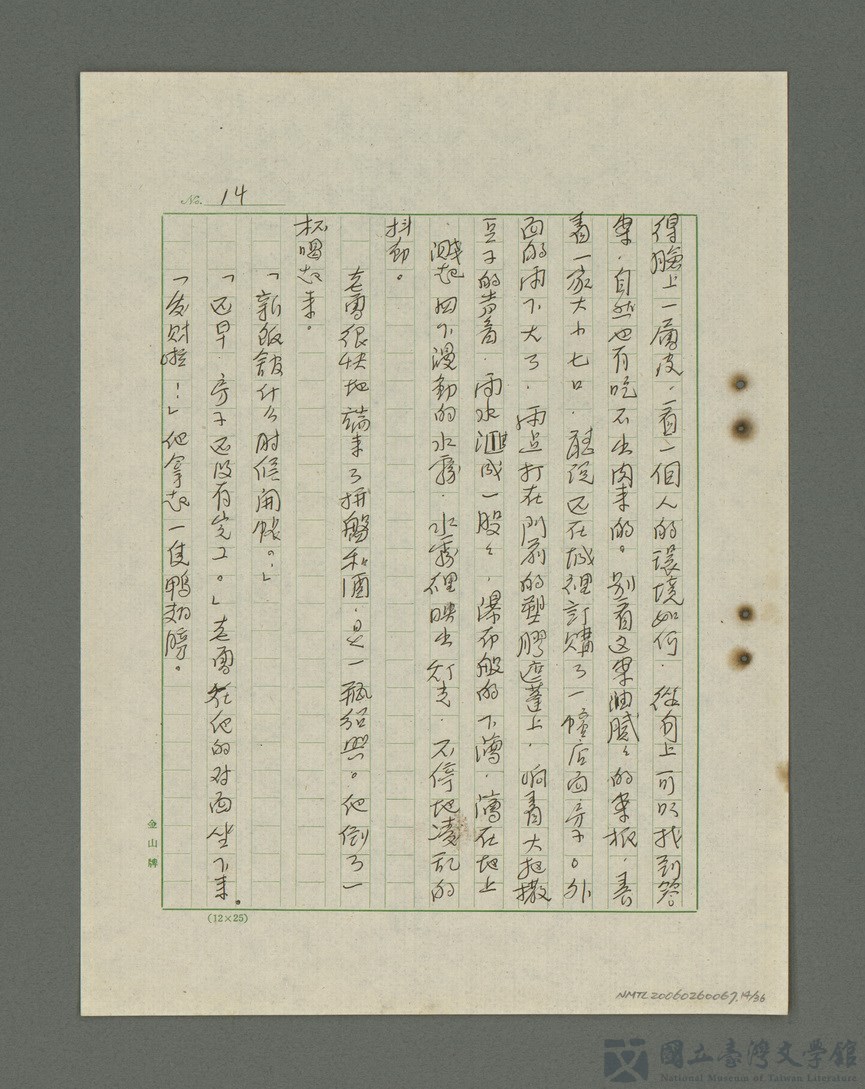 No. 14
得臉上一層皮，看一個人的環境如何，從旬上可以找到答
案，自然也有吃不出肉來的。別看这案油膩々的案板，養
着一家大小七口，聽說还在城裡訂購了一幢店面房子。外
面的雨下大了，雨点打在門前的塑膠遮蓬上，响着大把撒
豆子的声音，雨水滙成一股々，瀑布般的下瀉，瀉在地上
，濺起四下漫動的水霧，水霧裡映出灯光，不停地凌乱的
抖動。
老雷很快地端来了拼盤和酒，是一瓶紹興。他倒了一
杯喝起来。
「新飯館什么时候開張？」
「还早，房子还没有完工。」老雷在他的对面坐下来。
「发财啦！」他拿起一隻鴨翅膀。
金山牌
(12×25)
NMTL20060260067.14/36
國立臺灣文學館
National Museum of Taiwan Literature